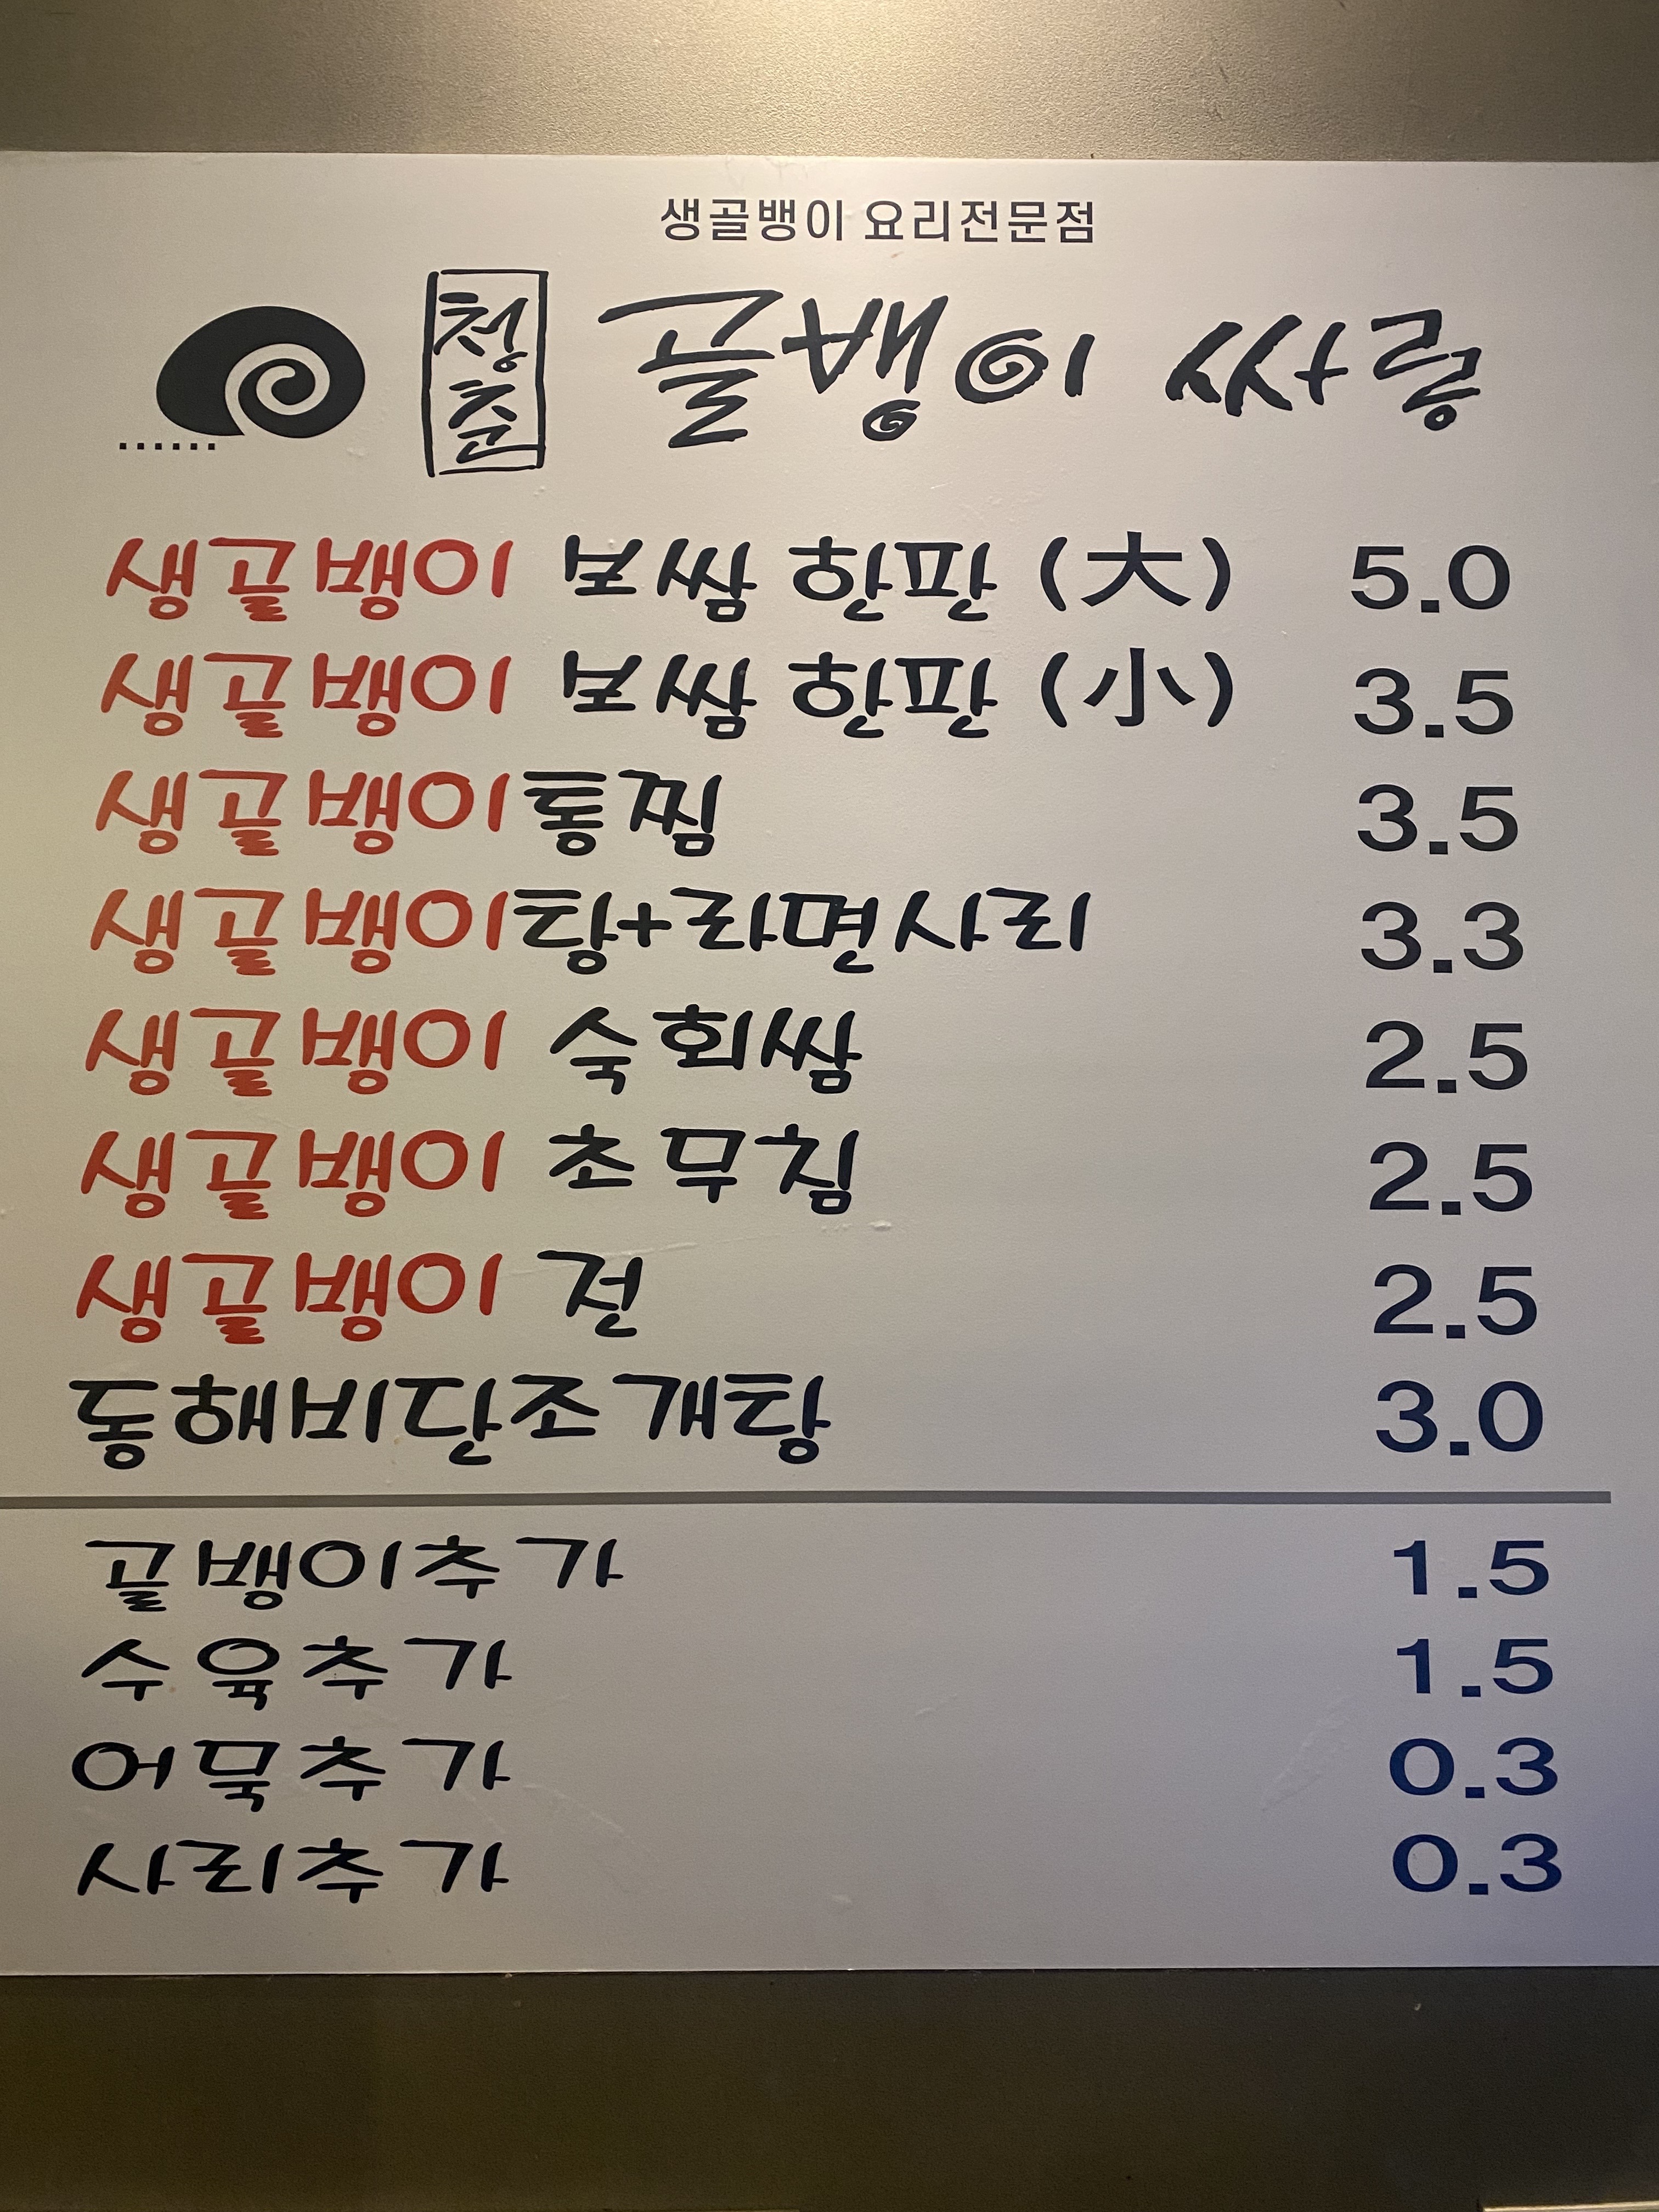 생골뱅이 요리전문점
청춘 골뱅이 싸롱
생골뱅이 보쌈 한판 (大) 5.0
생골뱅이 보쌈 한판 (小) 3.5
생골뱅이통찜 3.5
생골뱅이탕+라면사리 3.3
생골뱅이 숙회쌈 2.5
생골뱅이 초무침 2.5
생골뱅이 전 2.5
동해비단조개탕 3.0
골뱅이추가 1.5
수육추가 1.5
어묵추가 0.3
사리추가 0.3